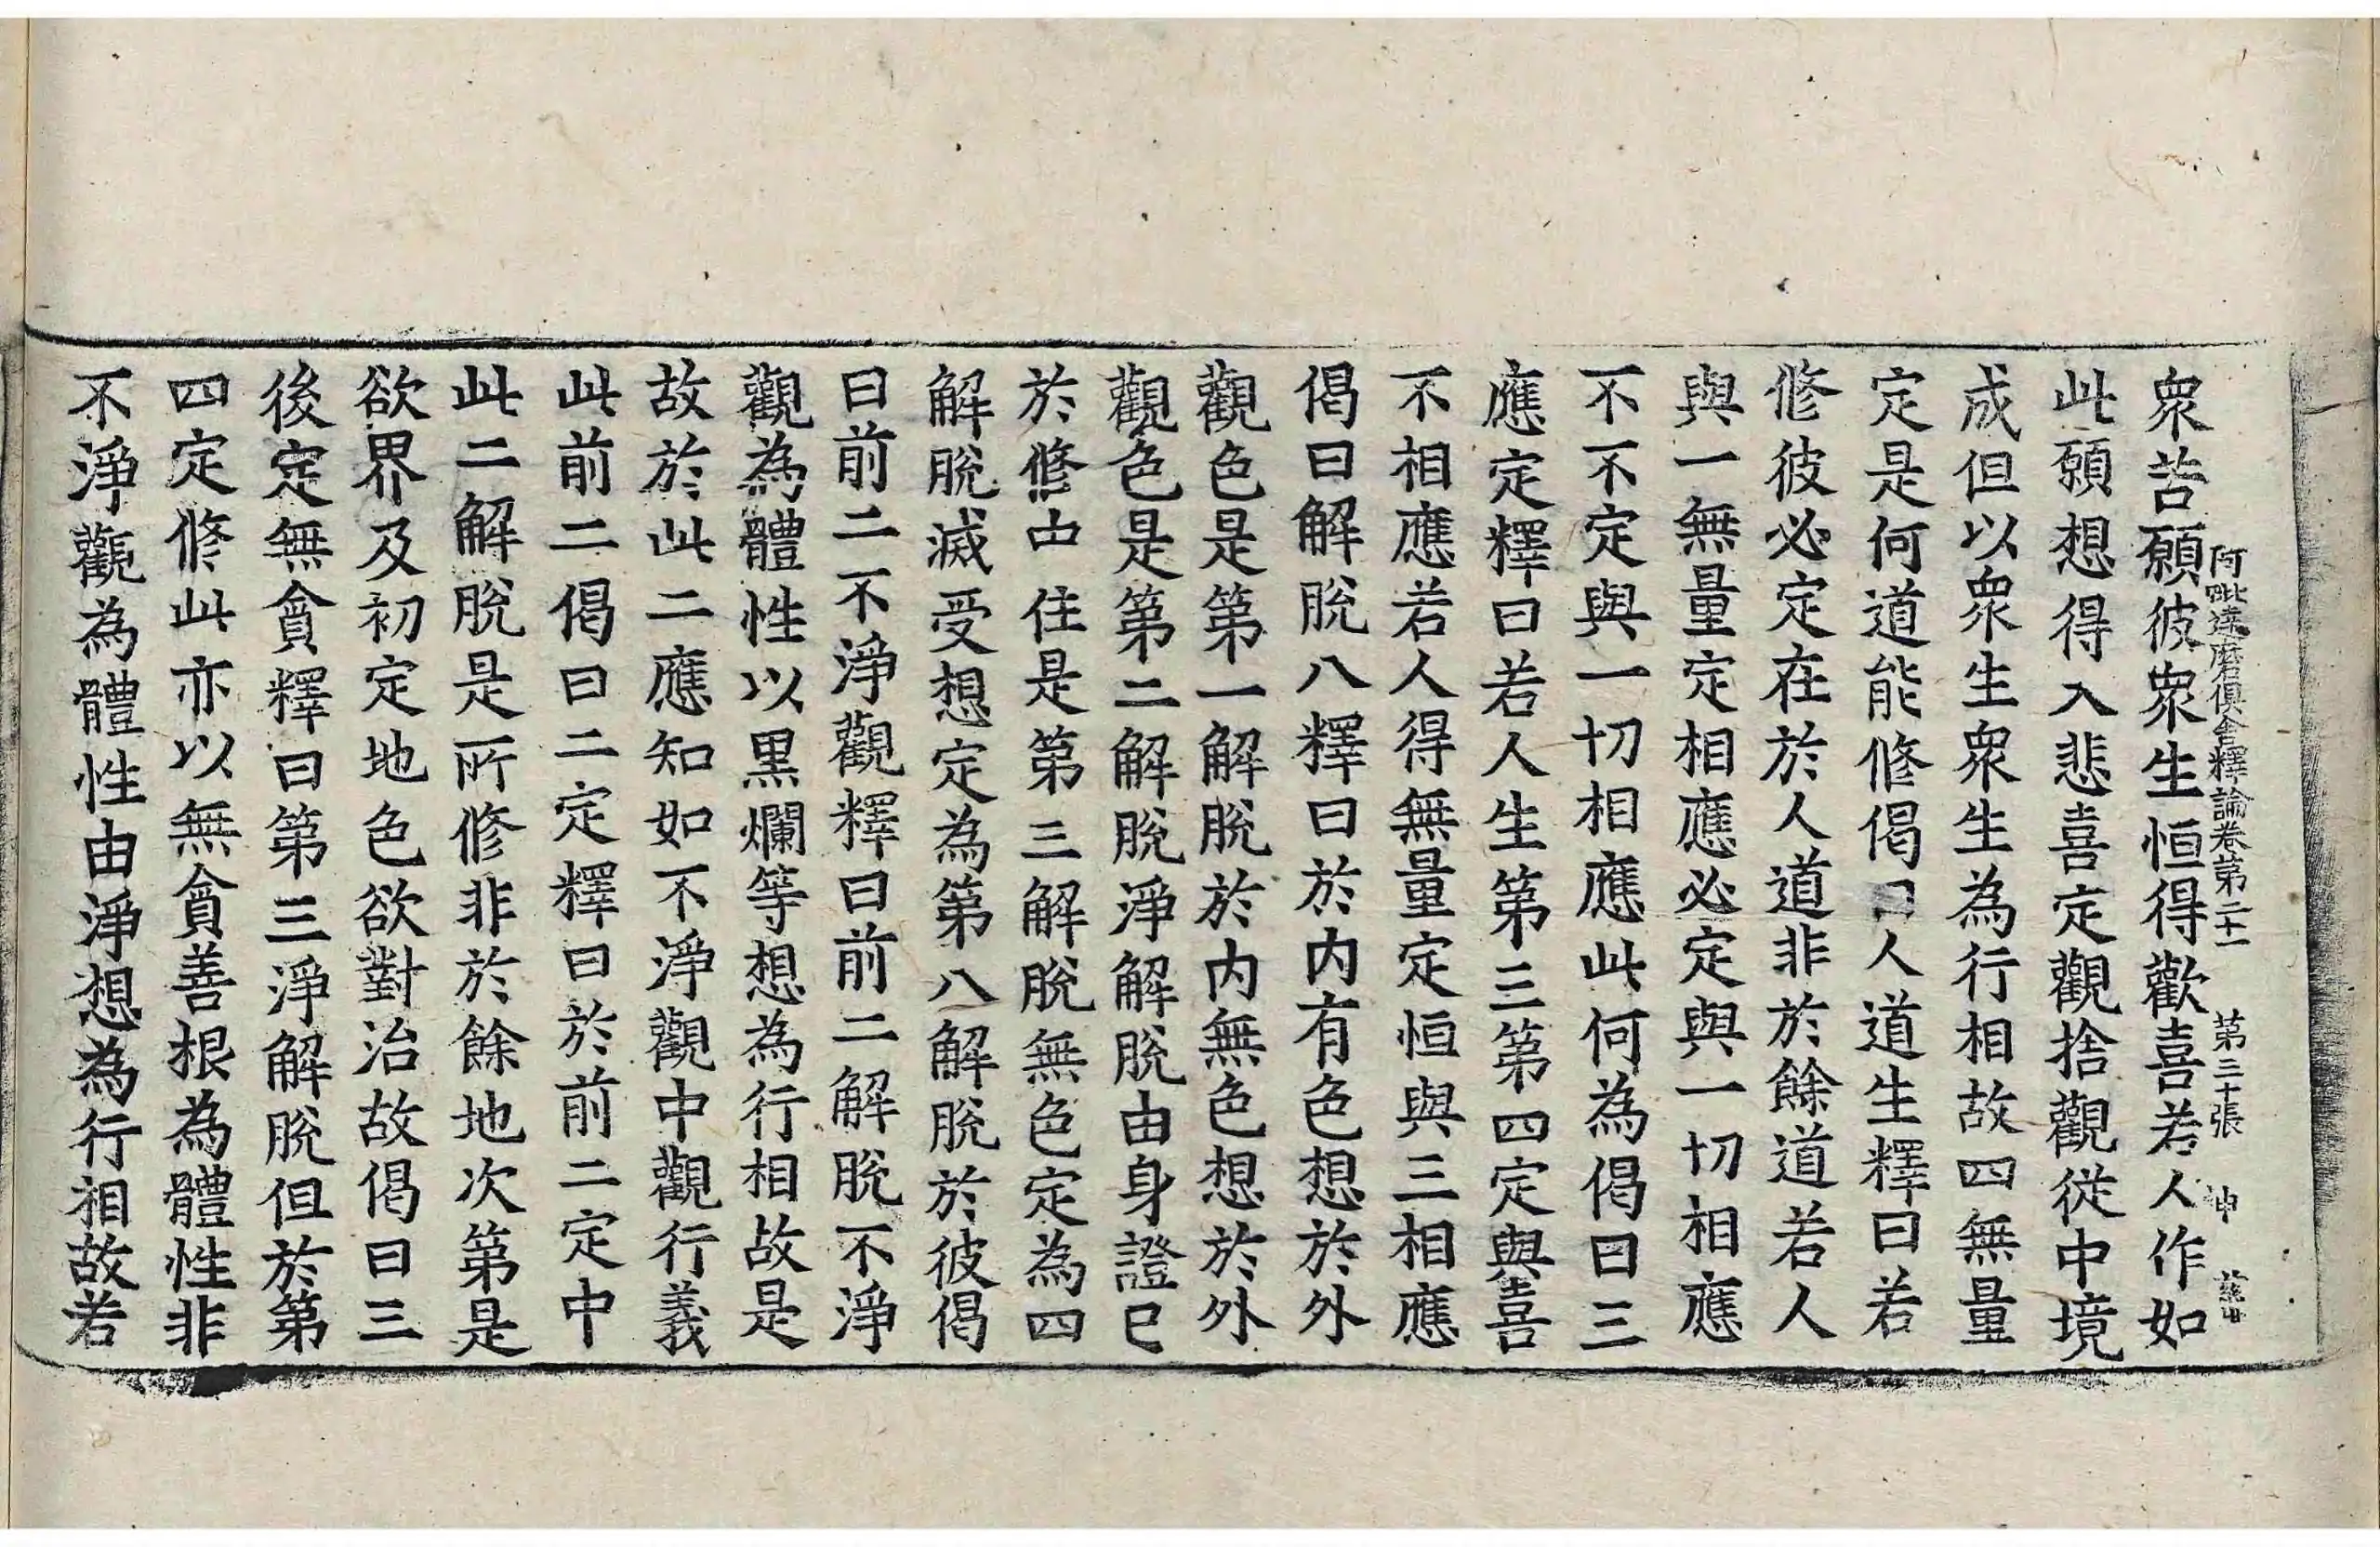 阿毗達磨俱舍釋論卷第二十一 第三十張 申
衆苦願彼衆生恒得歡喜若人作如
此願想得入悲喜定觀捨觀從中境
成但以衆生衆生為行相故四無量
定是何道能修偈曰人道生釋曰若
修彼必定在於人道非於餘道若人
與一無量定相應必定與一切相應
不不定與一切相應此何為偈曰三
應定釋曰若人生第三第四定與喜
不相應若人得無量定恒與三相應
偈曰解脫八釋曰於内有色想於外
觀色是第一解脫於内無色想於外
觀色是第二解脫淨解脫由身證已
於修中住是第三解脫無色定為四
解脫滅受想定為第八解脫於彼偈
曰前二不淨觀釋曰前二解脫不淨
觀為體性以黒爛等想為行相故是
故於此二應知如不淨觀中觀行義
此前二偈曰二定釋曰於前二定中
此二解脫是所修非於餘地次第是
欲界及初定地色欲對治故偈曰三
後定無貪釋曰第三淨解脫但於第
四定修此亦以無貪善根為體性非
不淨觀為體性由淨想為行相故若